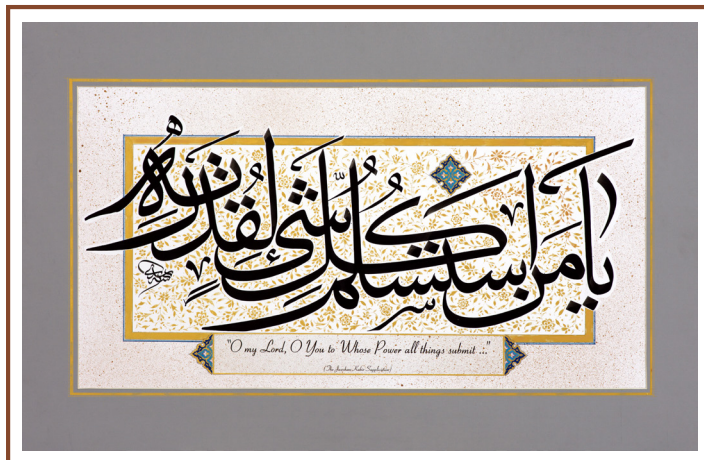 يَا مَنِ اسْتَسْلَمَ كُلُّ شَيْءٍ لِقُدْرَتِهِ
"O my Lord, O You to Whose Power all things submit .:."
(The Jawshan Kabir Supplication)